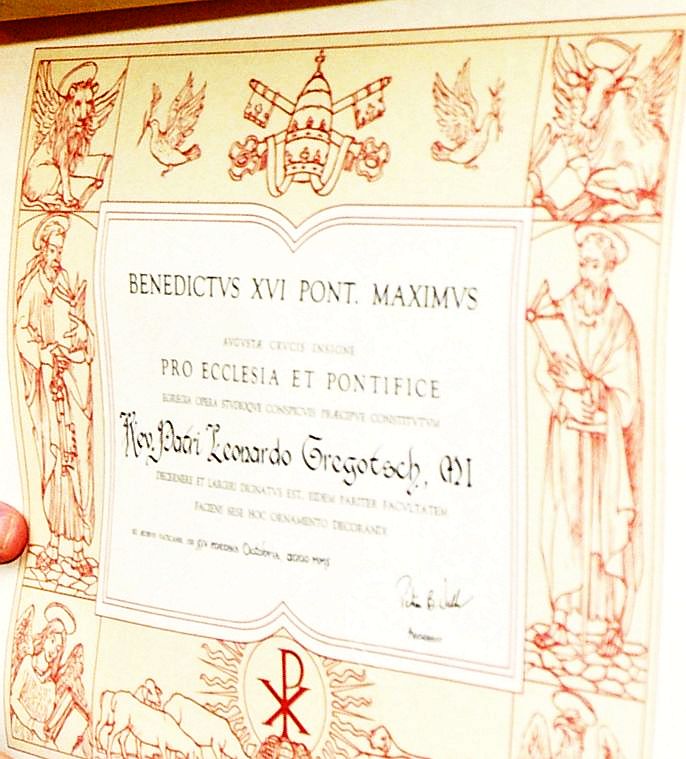 BENEDICTVS XVI PONT. MAXIMVS
AVGVSTÆ CRVCIS INSIGNE
PRO ECCLESIA ET PONTIFICE
EGREGIA OPERA STVDIOQVE CONSPICVIS PRÆCIPVE CONSTITVTVM
Rev. Patri Leonardo Gregotsch, MI
DECERNERE ET LARGIRI DIGNATVS EST, EIDEM PARITER FACVLTATEM
FACIENS SESE HOC ORNAMENTO DECORANDI
Octobris